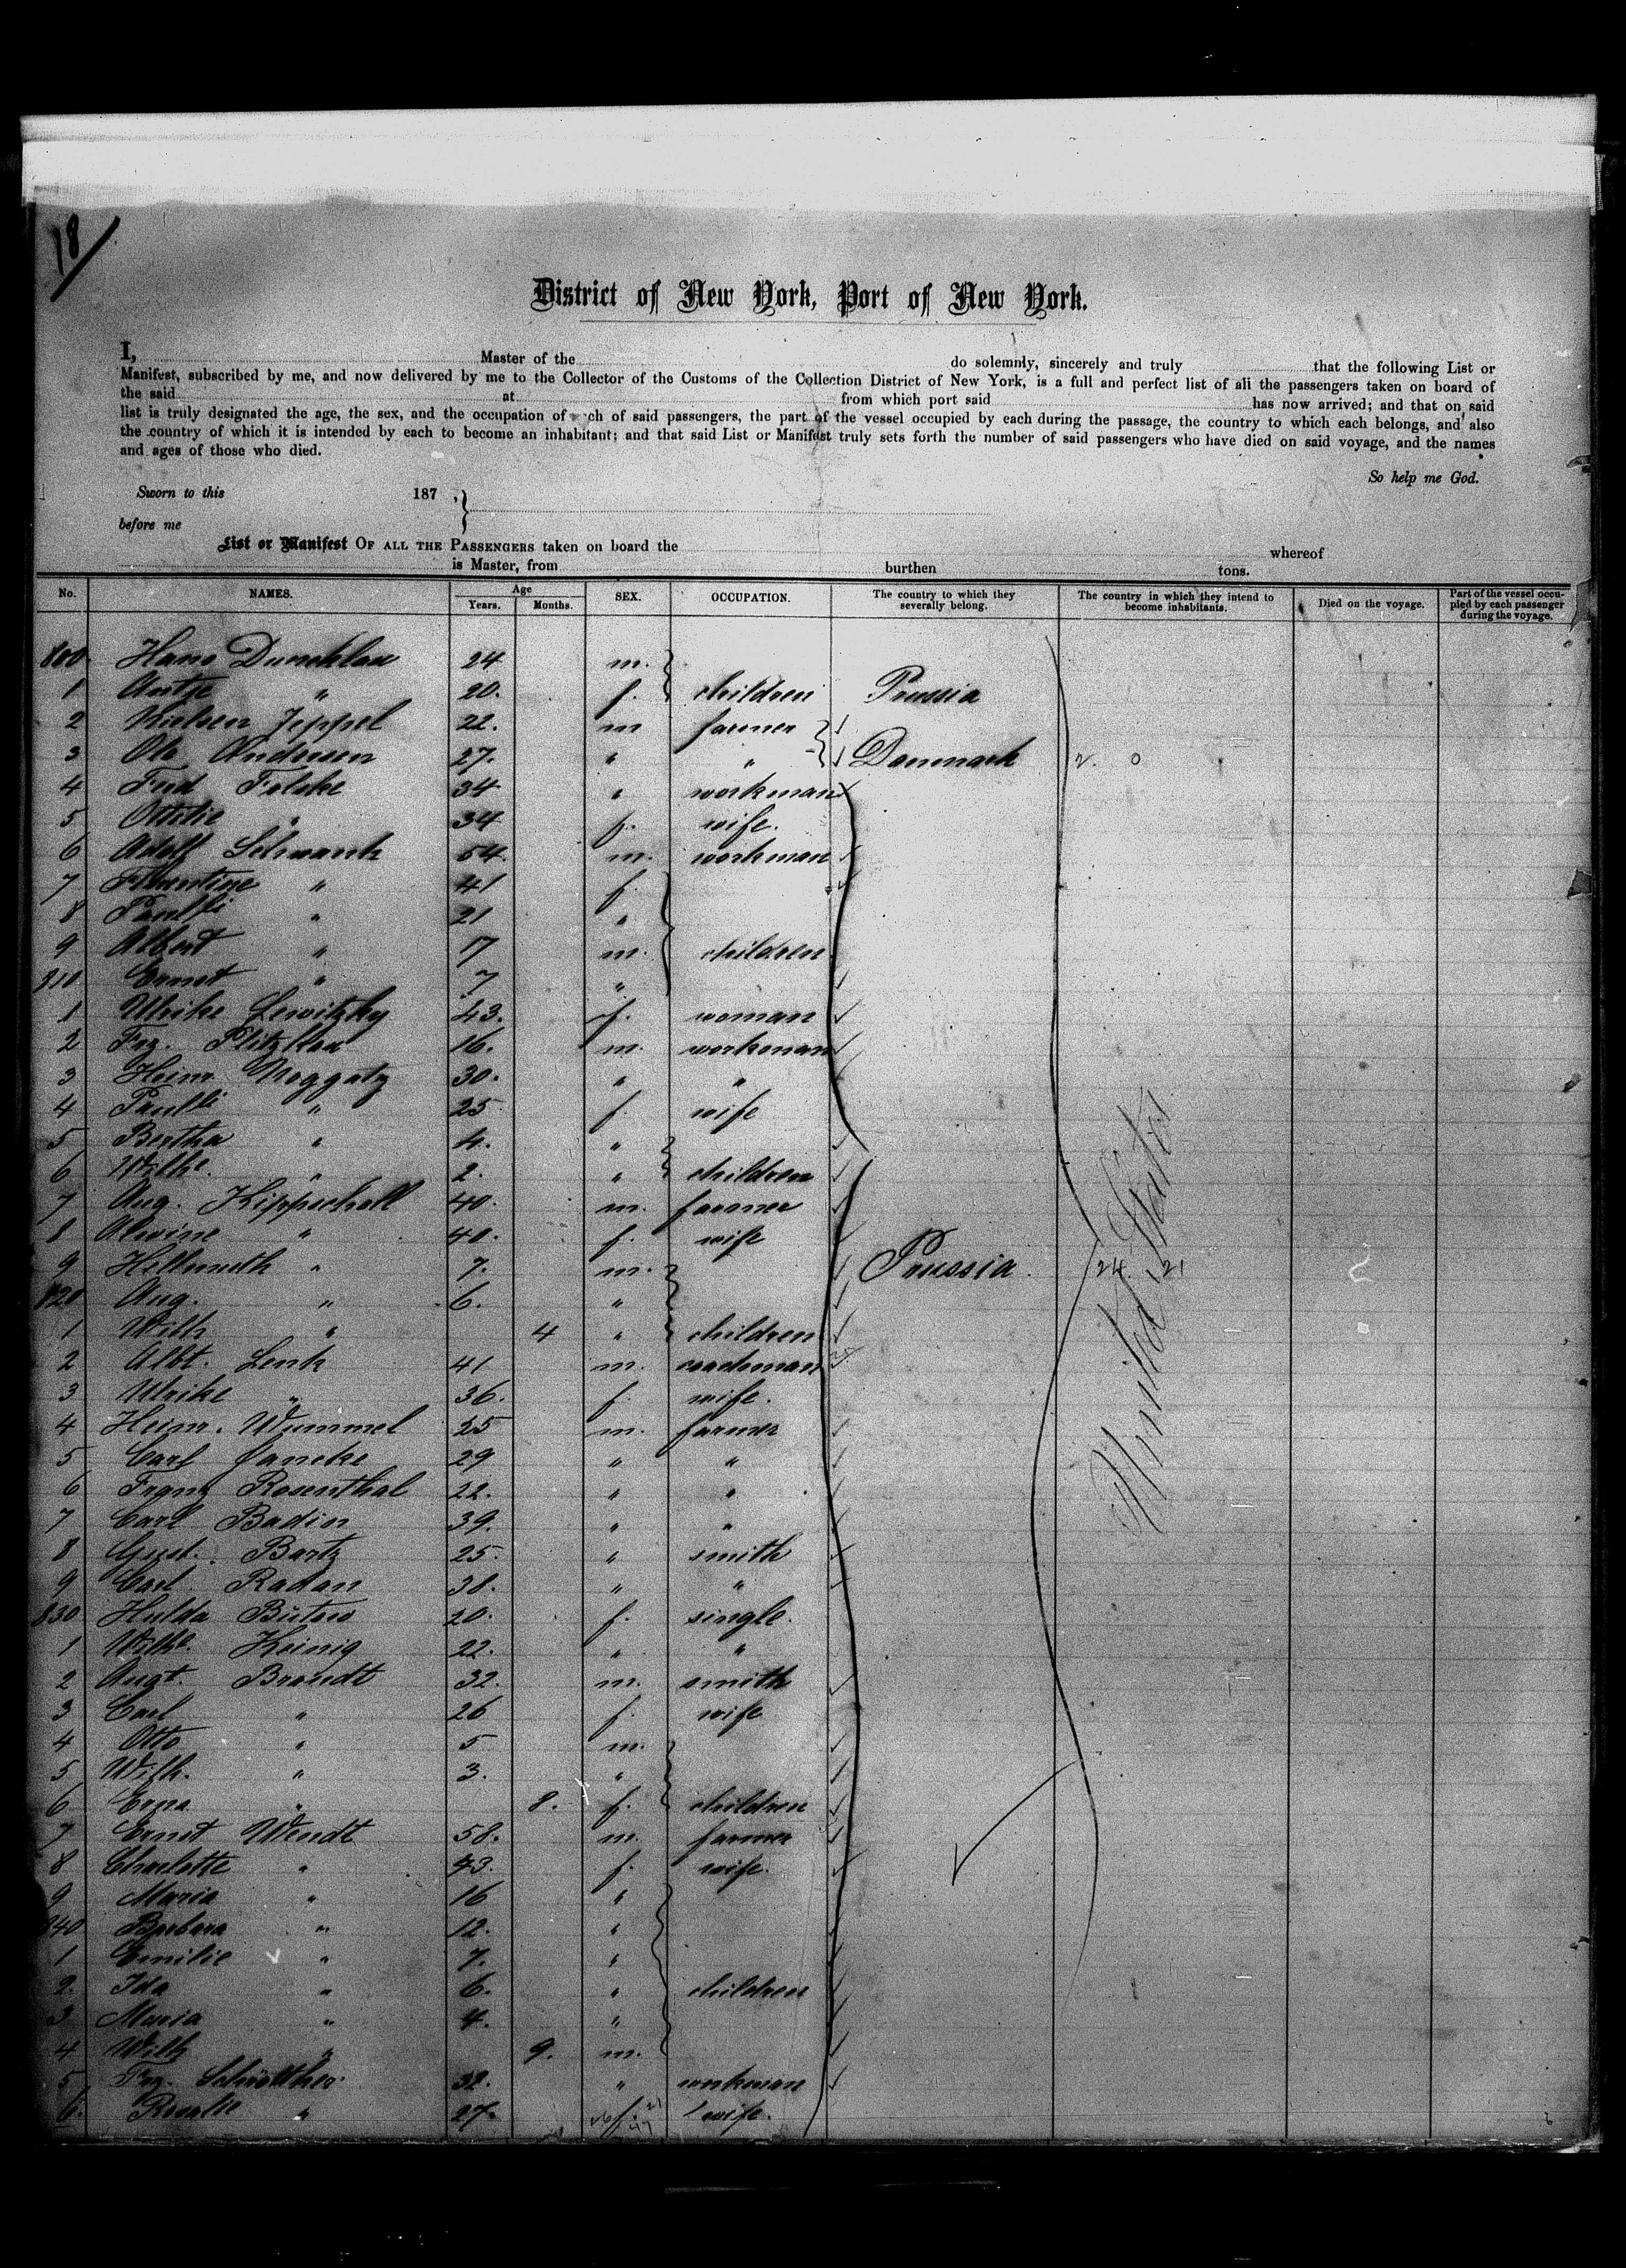 18/
District of New York, Port of New York.
I, Master of the do solemnly, sincerely and truly that the following List or
Manifest, subscribed by me, and now delivered by me to the Collector of the Customs of the Collection District of New York, is a full and perfect list of all the passengers taken on board of
the said at from which port said has now arrived; and that on said
list is truly designated the age, the sex, and the occupation of ch of said passengers, the part of the vessel occupied by each during the passage, the country to which each belongs, and also
the country of which it is intended by each to become an inhabitant; and that said List or Manifest truly sets forth the number of said passengers who have died on said voyage, and the names
and ages of those who died.
So help me God.
Sworn to this 187 ,
before me
List or Manifest OF ALL THE PASSENGERS taken on board the whereof
is Master, from burthen tons.
No. NAMES. Age Years. Months. SEX. OCCUPATION. The country to which they severally belong. The country in which they intend to become inhabitants. Died on the voyage. Part of the vessel occupied by each passenger during the voyage.
800. Hans Duncklau 24 m.
1 Antje " 20. f. children Prussia
2 Nielsen Jeppel 22. m farmer
3 Ole Andresen 27. " " Denmark 2. 0
4 Ferd Felske 34 " workman
5 Ottilie " 34 f. wife.
6 Adolf Schwank 54. m. workman
7 Florentine " 41 f.
8 " 21 "
9 Albert " 17 m. children
810 Ernst " 7 "
1 Ulrike Lewitzky 43. f. woman
2 Frz. 16. m. workman
3 Heinr. Noggatz 30. " "
4 " 25 f wife
5 Bertha " 4. "
6 Wilhe. " 2. " children
7 Aug. Kippschall 40. m. farmer
8 Alwine " 40. f. wife
9 Hellmuth " 7. m. Prussia 24. 21
820 Aug. " 6. "
1 Wilh " 4 " children
2 Albt. Lenk 41 m. coachman
3 Ulrike " 36. f. wife.
4 Heinr. Wummel 25 m. farmer
5 Carl Jancke 29 " "
6 Franz Rosenthal 22. " "
7 Carl Badin 39. " "
8 Gust. Bartz 25. " smith
9 Carl Radan 38. " "
830 Hulda Bütow 20. f. single.
1 Wilhe. Keinig 22. " "
2 Augt. Brandt 32. m. smith
3 Carl " 26 f. wife
4 Otto " 5 m.
5 Wilh. " 3. "
6 Erna " 8. f. children
7 Ernst Wendt 58. m. farmer
8 Charlotte " 43. f. wife.
9 Maria " 16 "
840 Barbara " 12. "
1 Emilie " 7. "
2. Ida " 6. " children
3 Maria " 4. "
4 Wilh " 9. m.
5 Frz. 32. " workman
6. Rosalie " 27. f. wife.
United States